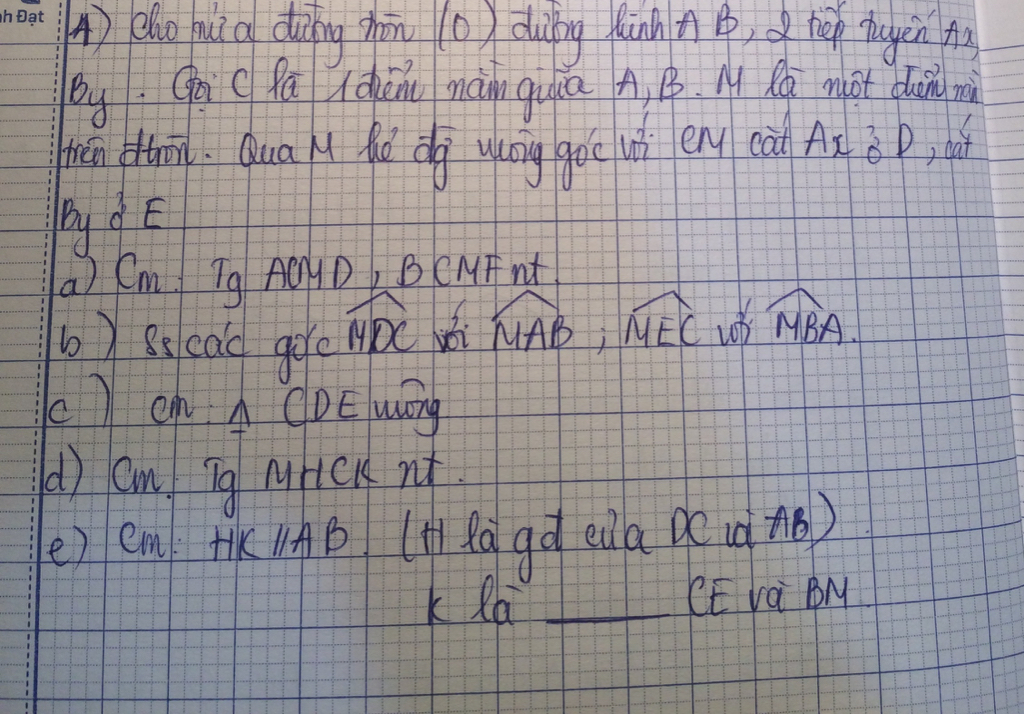 nh Đạt
4) Cho nửa đường tròn (O) đường kính AB, 2 tiếp tuyến Ax,
By. Gọi C là 1 điểm nằm giữa A, B. M là một điểm nằm
trên đtròn. Qua M kẻ đg vuông góc với CM cắt Ax ở D, cắt
By ở E
a) Cm: Tg ACMD, BCMF nt.
b) Ss các góc MDC với MAB; MEC với MBA.
c) Cm: Δ CDE vuông
d) Cm: Tg MHCK nt.
e) Cm: HK // AB. (H là gđ của DC và AB)
K là ____ CE và BM